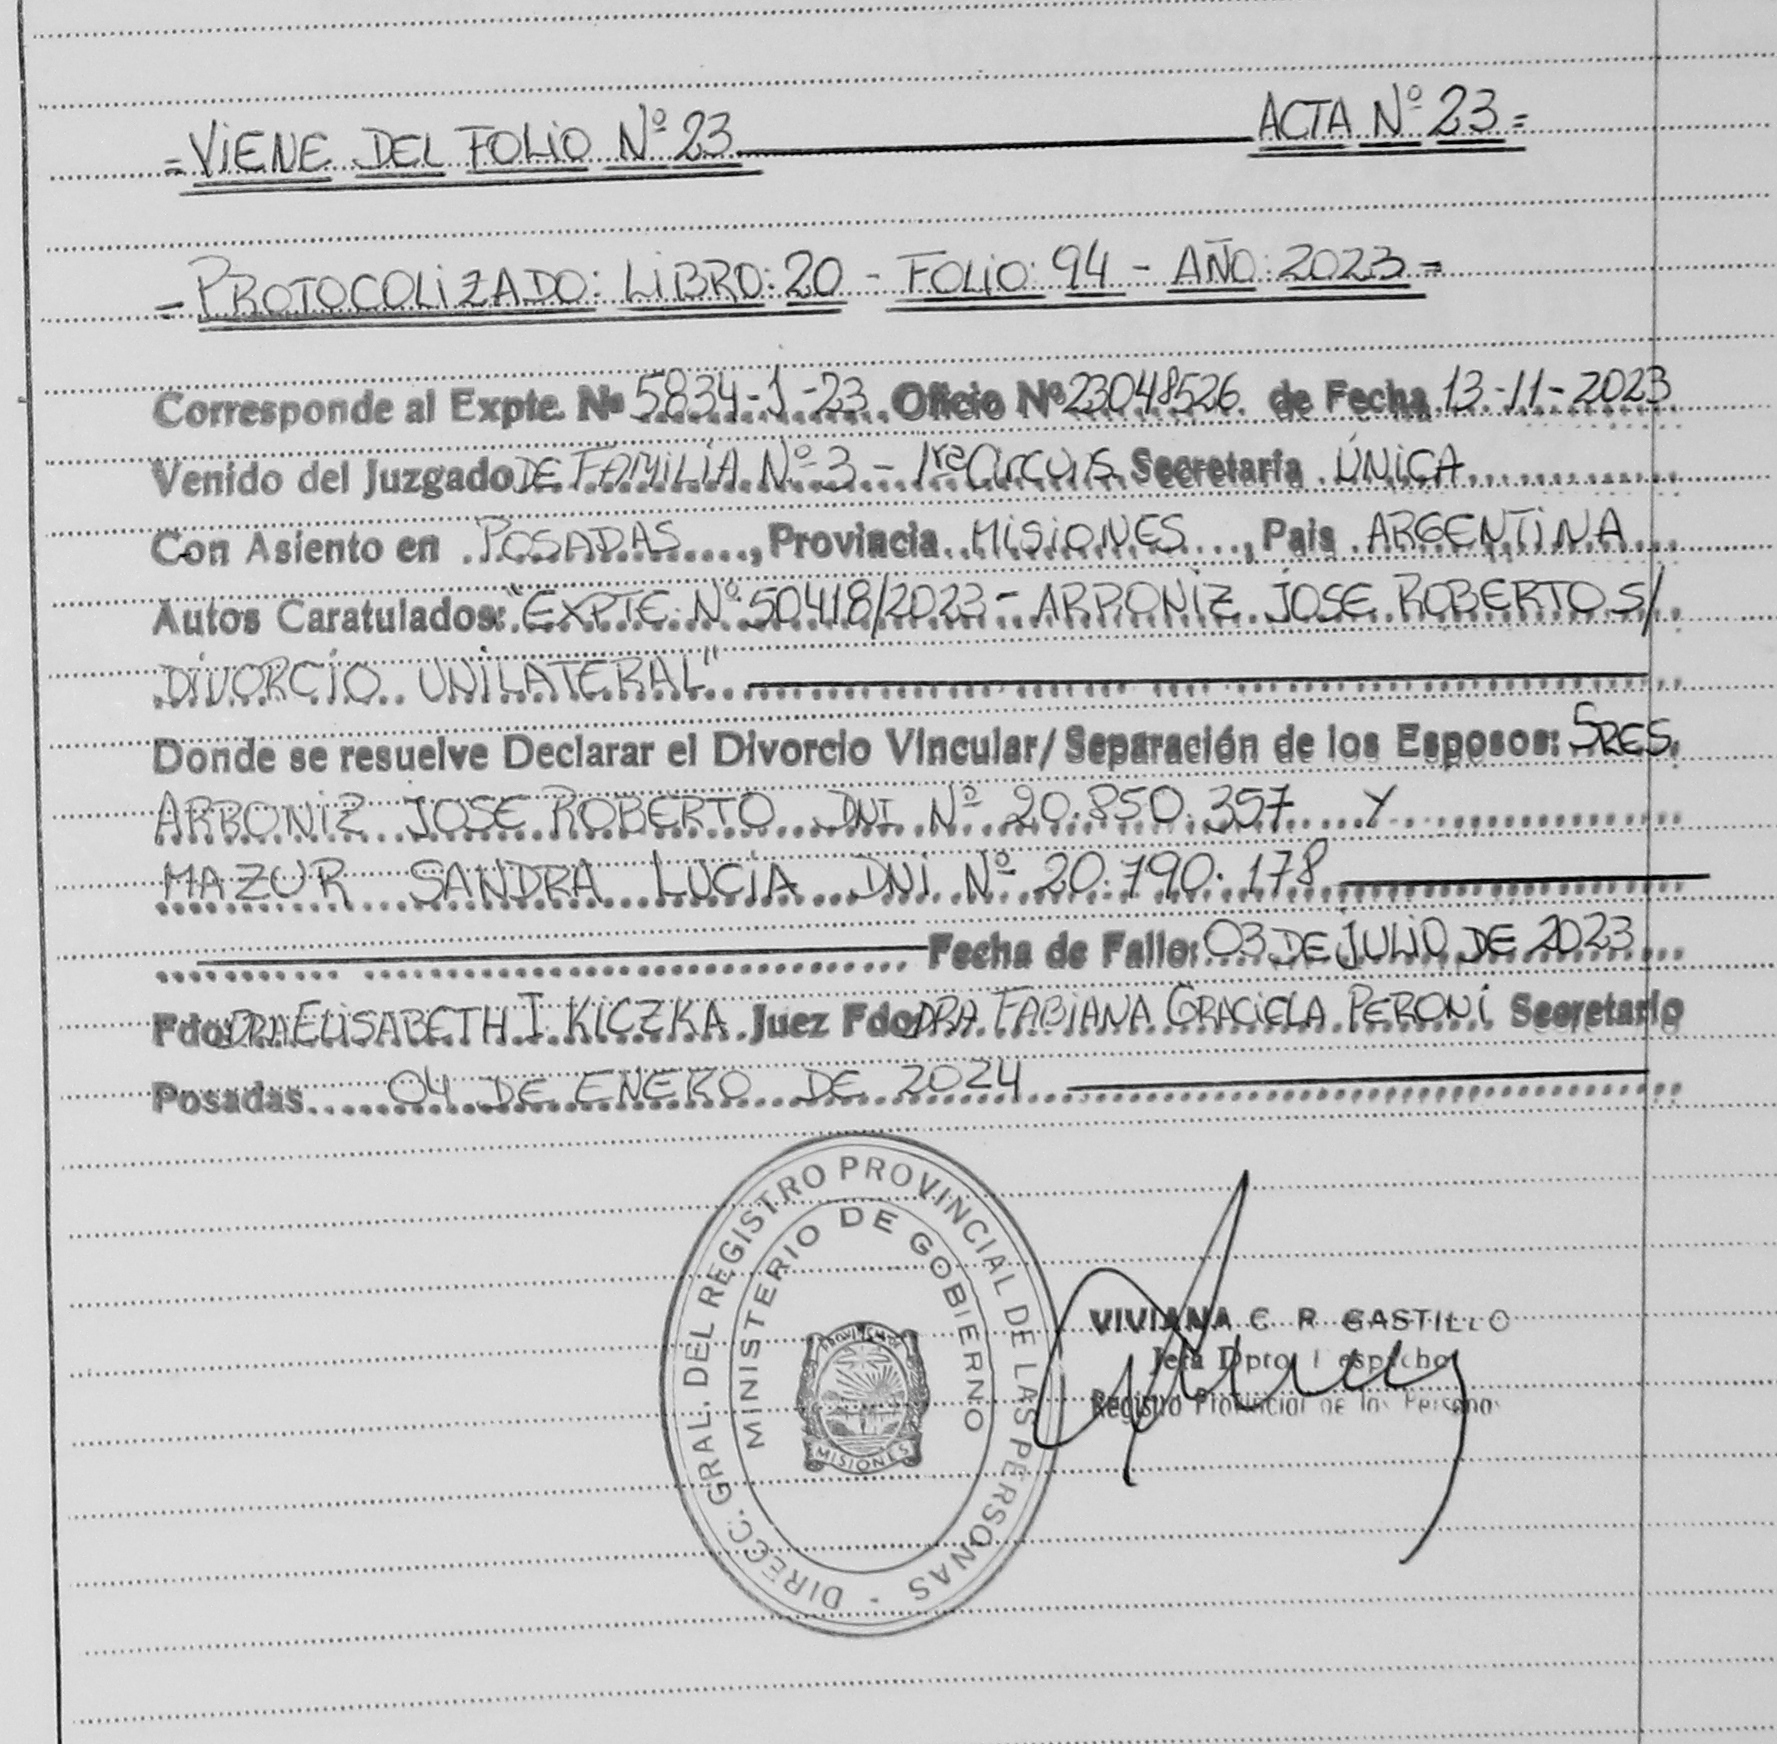 =VIENE DEL FOLIO Nº 23 ACTA Nº 23=
=PROTOCOLIZADO: LIBRO: 20 - FOLIO: 94 - AÑO: 2023=
Corresponde al Expte. Nº 5834-J-23 Oficio Nº 23048526 de Fecha 13-11-2023
Venido del Juzgado DE FAMILIA Nº 3 - 1ra Circuns. Secretaría ÚNICA
Con Asiento en POSADAS, Provincia MISIONES, Pais ARGENTINA
Autos Caratulados: "EXPTE Nº 50418/2023 - ARRONIZ JOSE ROBERTO S/
DIVORCIO UNILATERAL"
Donde se resuelve Declarar el Divorcio Vincular/Separación de los Esposos: SRES.
ARRONIZ JOSE ROBERTO DNI Nº 20.850.357 Y
MAZUR SANDRA LUCIA DNI Nº 20.790.178
Fecha de Fallo: 03 DE JULIO DE 2023
Fdo DRA ELISABETH I. KICZKA Juez Fdo DRA. FABIANA GRACIELA PERONI Secretario
Posadas 04 DE ENERO DE 2024
DIRECC. GRAL. DEL REGISTRO PROVINCIAL DE LAS PERSONAS -
MINISTERIO DE GOBIERNO
PROVINCIA DE
MISIONES
VIVIANA C. R. CASTILLO
Jefa Dpto. Despacho
Registro Provincial de las Personas